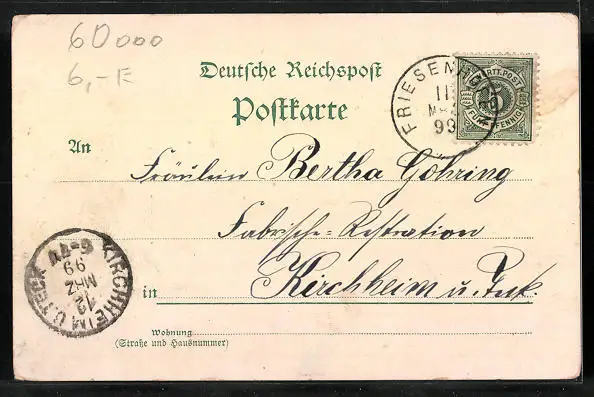 60000
6,-E
Deutsche Reichspost
Postkarte
FRIESENHOFEN
11
MRZ
99
K. WÜRTT. POST
5
FÜNF PFENNIG
An
Fräulein Bertha Göhring
Fabrische-Restration
in Kirchheim u. Teck.
KIRCHHEIM U. TECK
12
MRZ
99
6-7N
Wohnung
(Straße und Hausnummer)